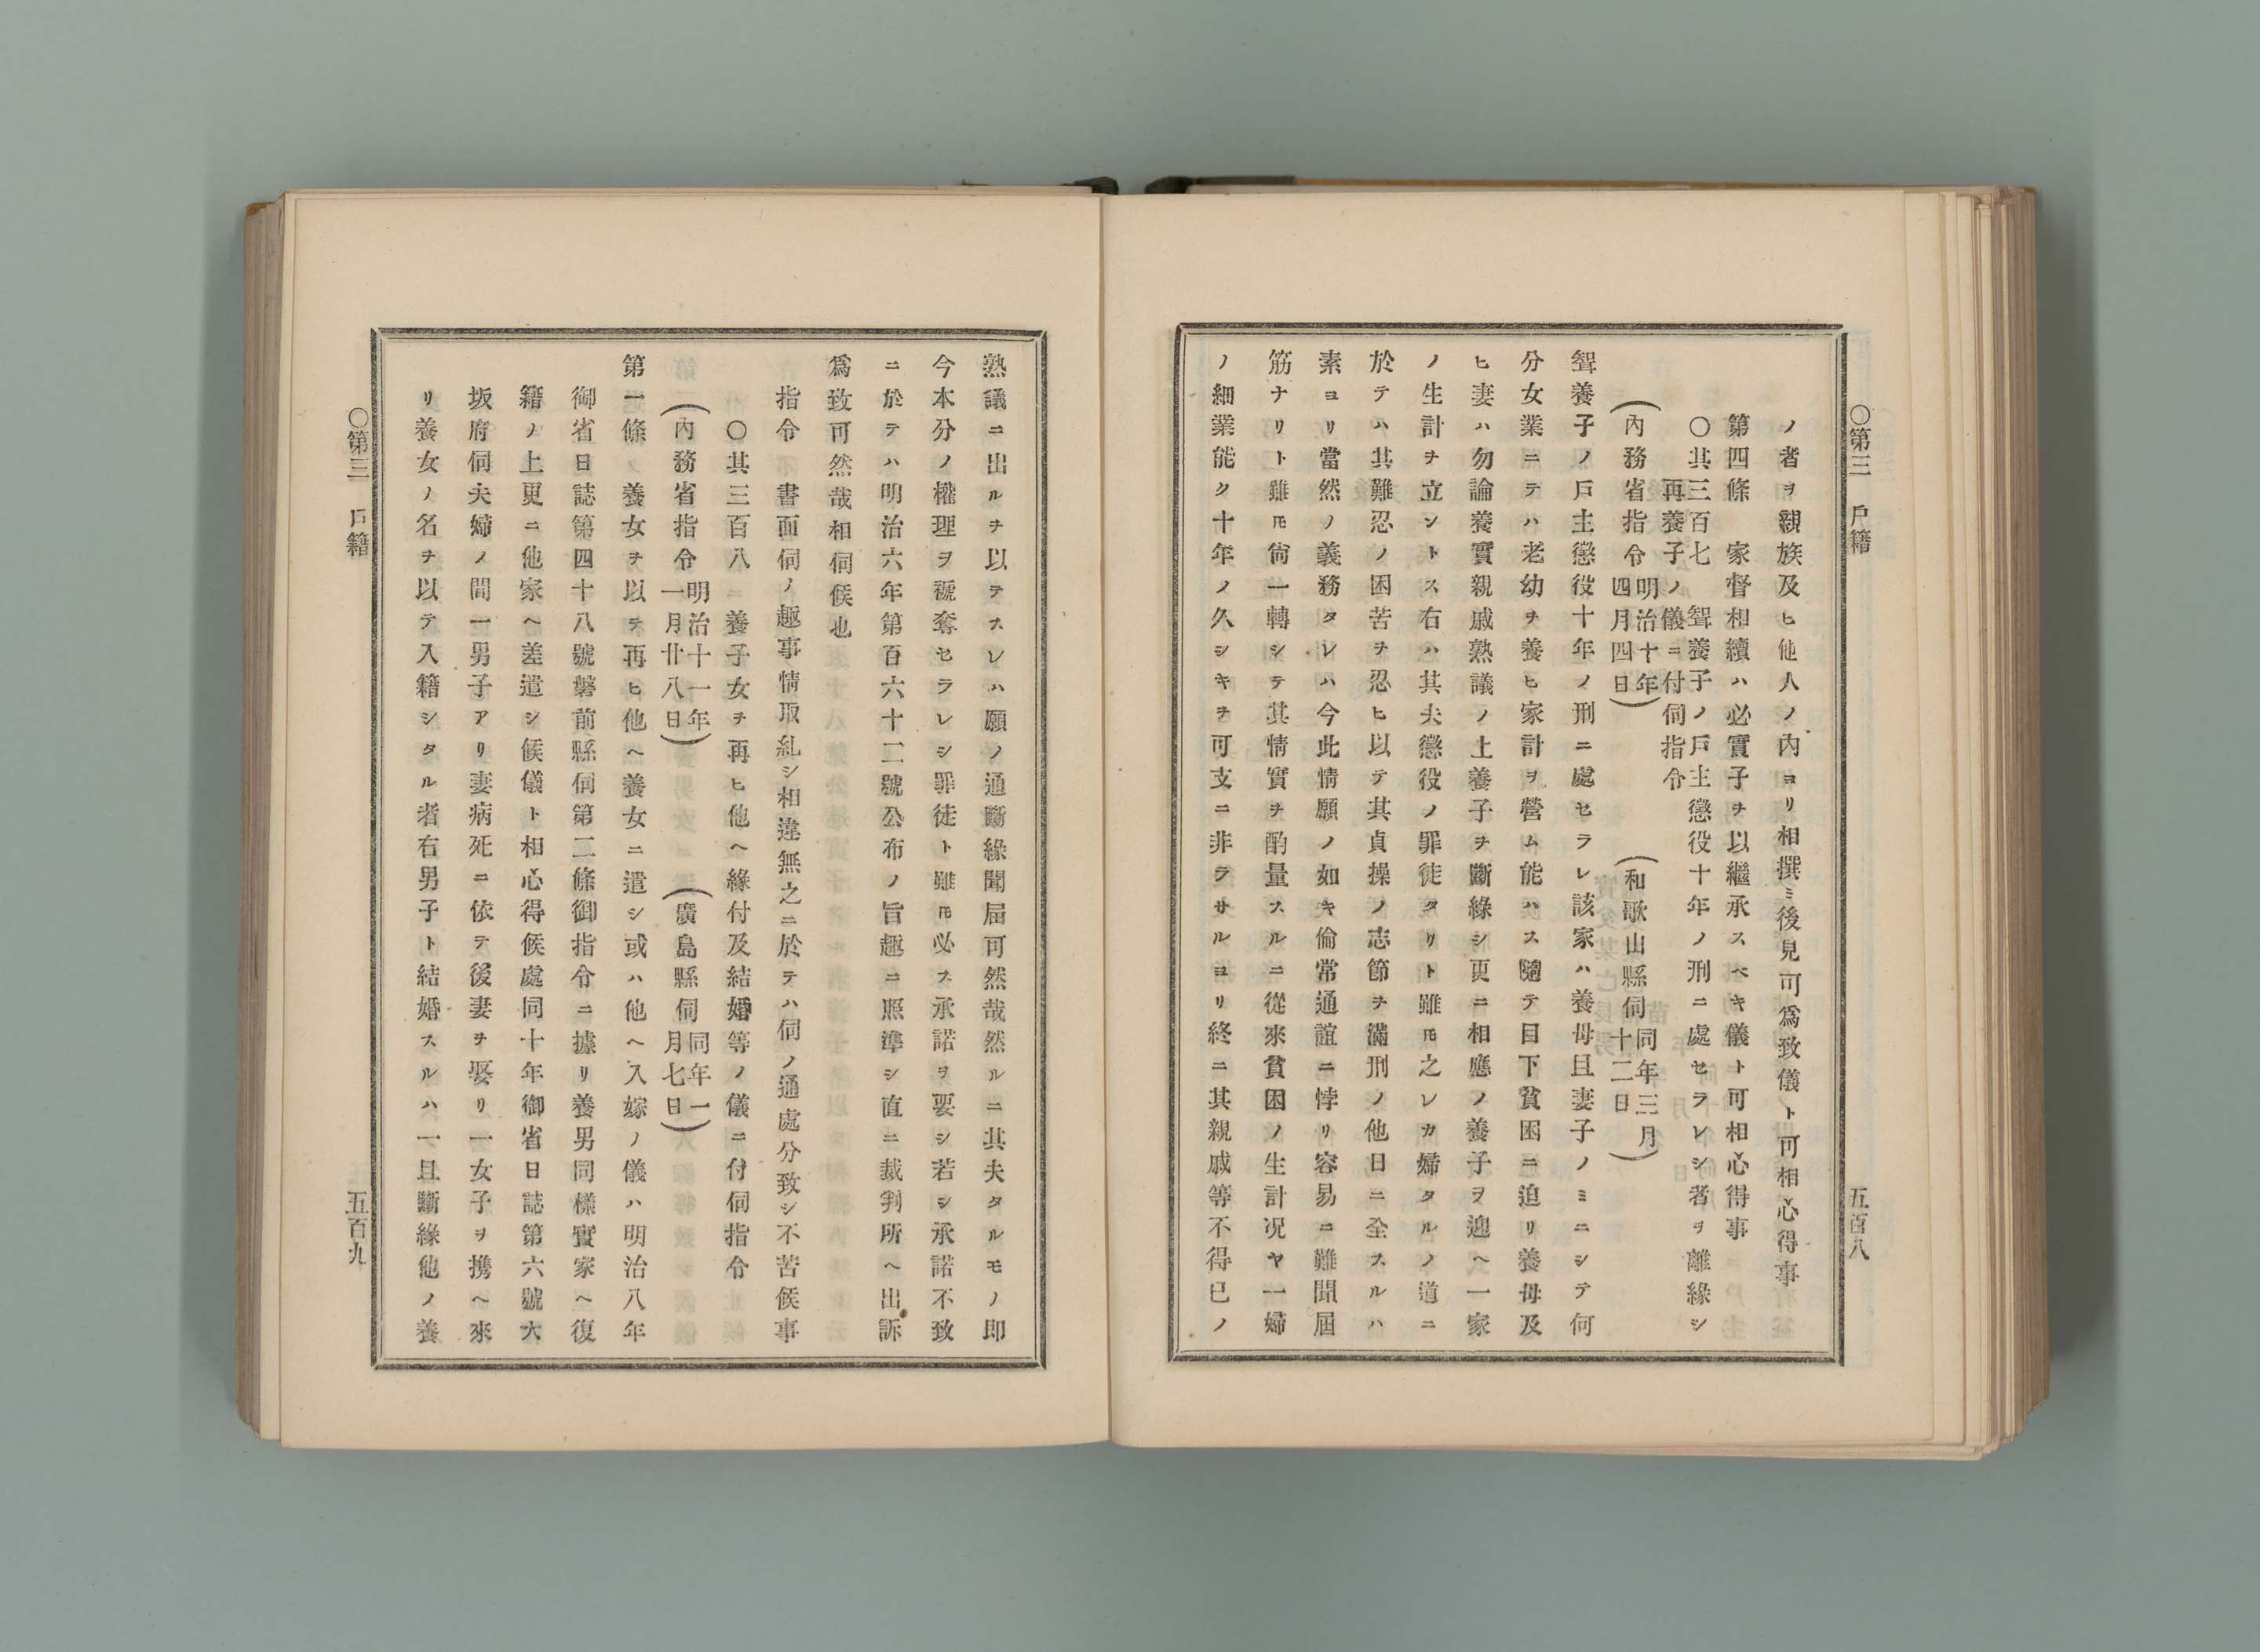 ○第三　戶籍　五百八
ノ者ヲ親族及ヒ他人ノ內ヨリ相撰ミ後見可爲致儀ト可相心得事
第四條　家督相續ハ必實子ヲ以繼承スヘキ儀ト可相心得事
○其三百七　聟養子ノ戶主懲役十年ノ刑ニ處セラレシ者ヲ離緣シ
再養子ノ儀ニ付伺指令
（內務省指令明治十年四月四日）　（和歌山縣伺同年三月十二日）
聟養子ノ戶主懲役十年ノ刑ニ處セラレ該家ハ養母且妻子ノミニシテ何
分女業ニテハ老幼ヲ養ヒ家計ヲ營ム能ハス隨テ目下貧困ニ迫リ養母及
ヒ妻ハ勿論養實親戚熟議ノ上養子ヲ斷緣シ更ニ相應ノ養子ヲ迎ヘ一家
ノ生計ヲ立ントス右ハ其夫懲役ノ罪徒タリト雖𪜈之レカ婦タルノ道ニ
於テハ其難忍ノ困苦ヲ忍ヒ以テ其貞操ノ志節ヲ滿刑ノ他日ニ全スルハ
素ヨリ當然ノ義務タレハ今此情願ノ如キ倫常通誼ニ悖リ容易ニ難聞屆
筋ナリト雖𪜈尙一轉シテ其情實ヲ酌量スルニ從來貧困ノ生計況ヤ一婦
ノ細業能ク十年ノ久シキヲ可支ニ非ラサルヨリ終ニ其親戚等不得已ノ
熟議ニ出ルヲ以テスレハ願ノ通斷緣聞届可然哉然ルニ其夫タルモノ即
今本分ノ權理ヲ褫奪セラレシ罪徒ト雖𪜈必ス承諾ヲ要シ若シ承諾不致
ニ於テハ明治六年第百六十二號公布ノ旨趣ニ照準シ直ニ裁判所ヘ出訴
爲致可然哉相伺候也
指令　書面伺ノ趣事情取糺シ相違無之ニ於テハ伺ノ通處分致シ不苦候事
○其三百八　養子女ヲ再ヒ他ヘ緣付及結婚等ノ儀ニ付伺指令
（內務省指令明治十一年一月廿八日）　（廣島縣伺同年一月七日）
第一條　養女ヲ以テ再ヒ他ヘ養女ニ遣シ或ハ他ヘ入嫁ノ儀ハ明治八年
御省日誌第四十八號磐前縣伺第二條御指令ニ據リ養男同樣實家ヘ復
籍ノ上更ニ他家ヘ差遣シ候儀ト相心得候處同十年御省日誌第六號大
坂府伺夫婦ノ間一男子アリ妻病死ニ依テ後妻ヲ娶リ一女子ヲ携ヘ來
リ養女ノ名ヲ以テ入籍シタル者右男子ト結婚スルハ一旦斷緣他ノ養
○第三　戶籍　五百九